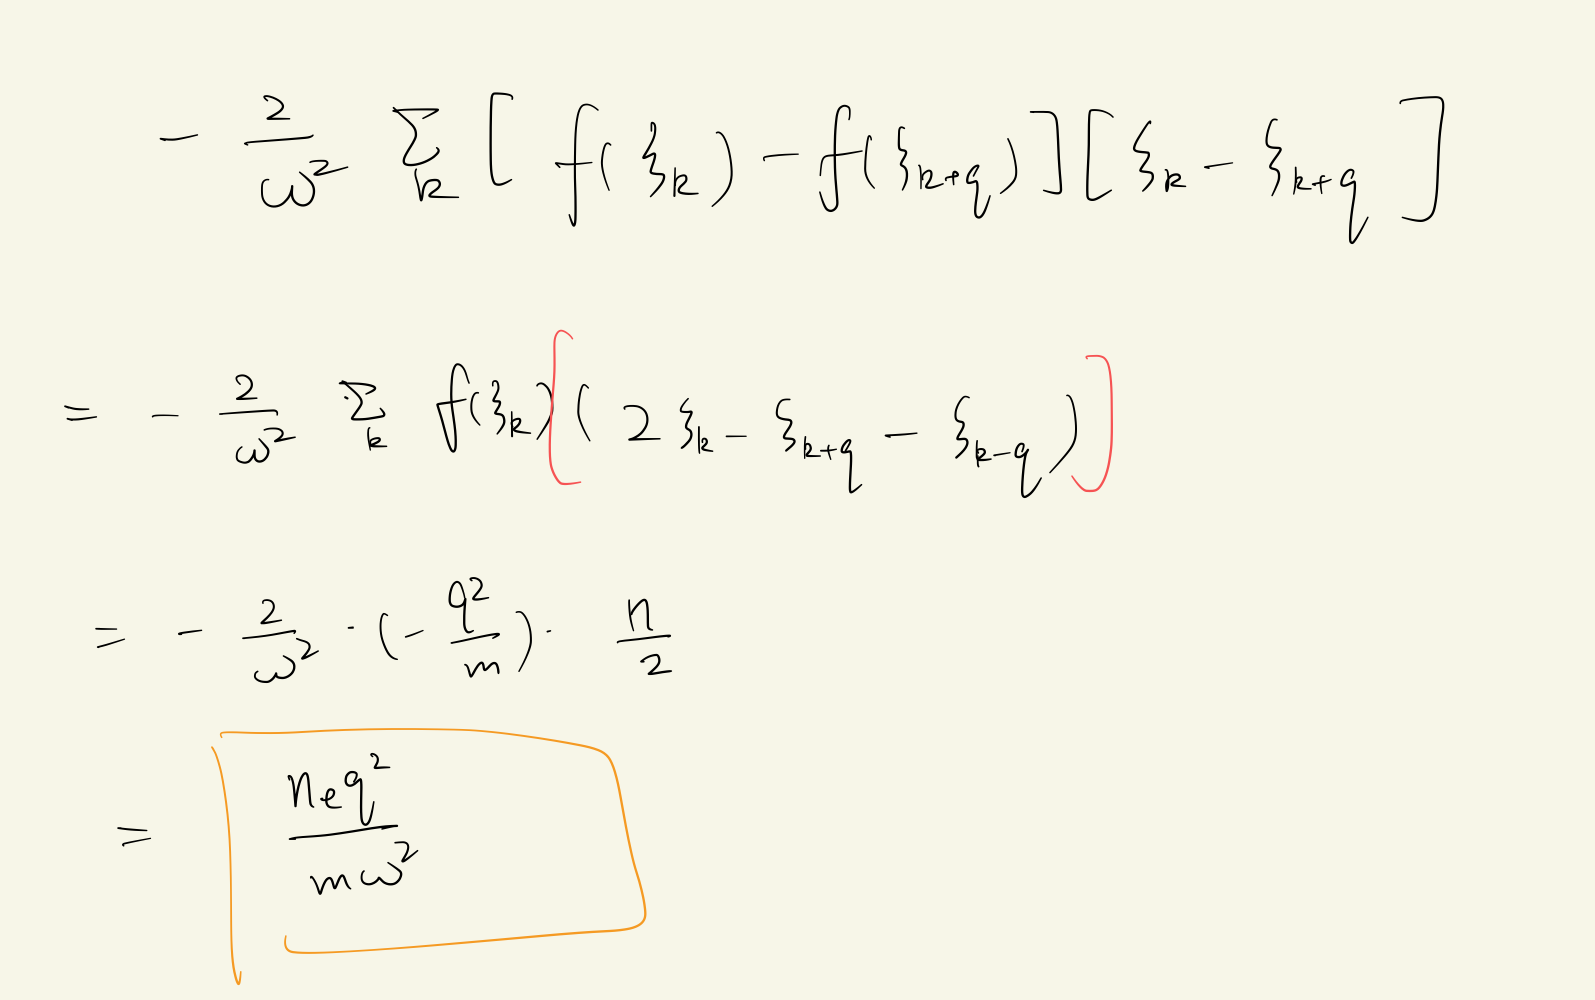 $- \frac{2}{\omega^2} \sum_k [ f(\xi_k) - f(\xi_{k+q}) ] [ \xi_k - \xi_{k+q} ]$
$= - \frac{2}{\omega^2} \sum_k f(\xi_k) [ ( 2 \xi_k - \xi_{k+q} - \xi_{k-q} ) ]$
$= - \frac{2}{\omega^2} \cdot ( - \frac{q^2}{m} ) \cdot \frac{n}{2}$
$= \frac{n_e q^2}{m \omega^2}$